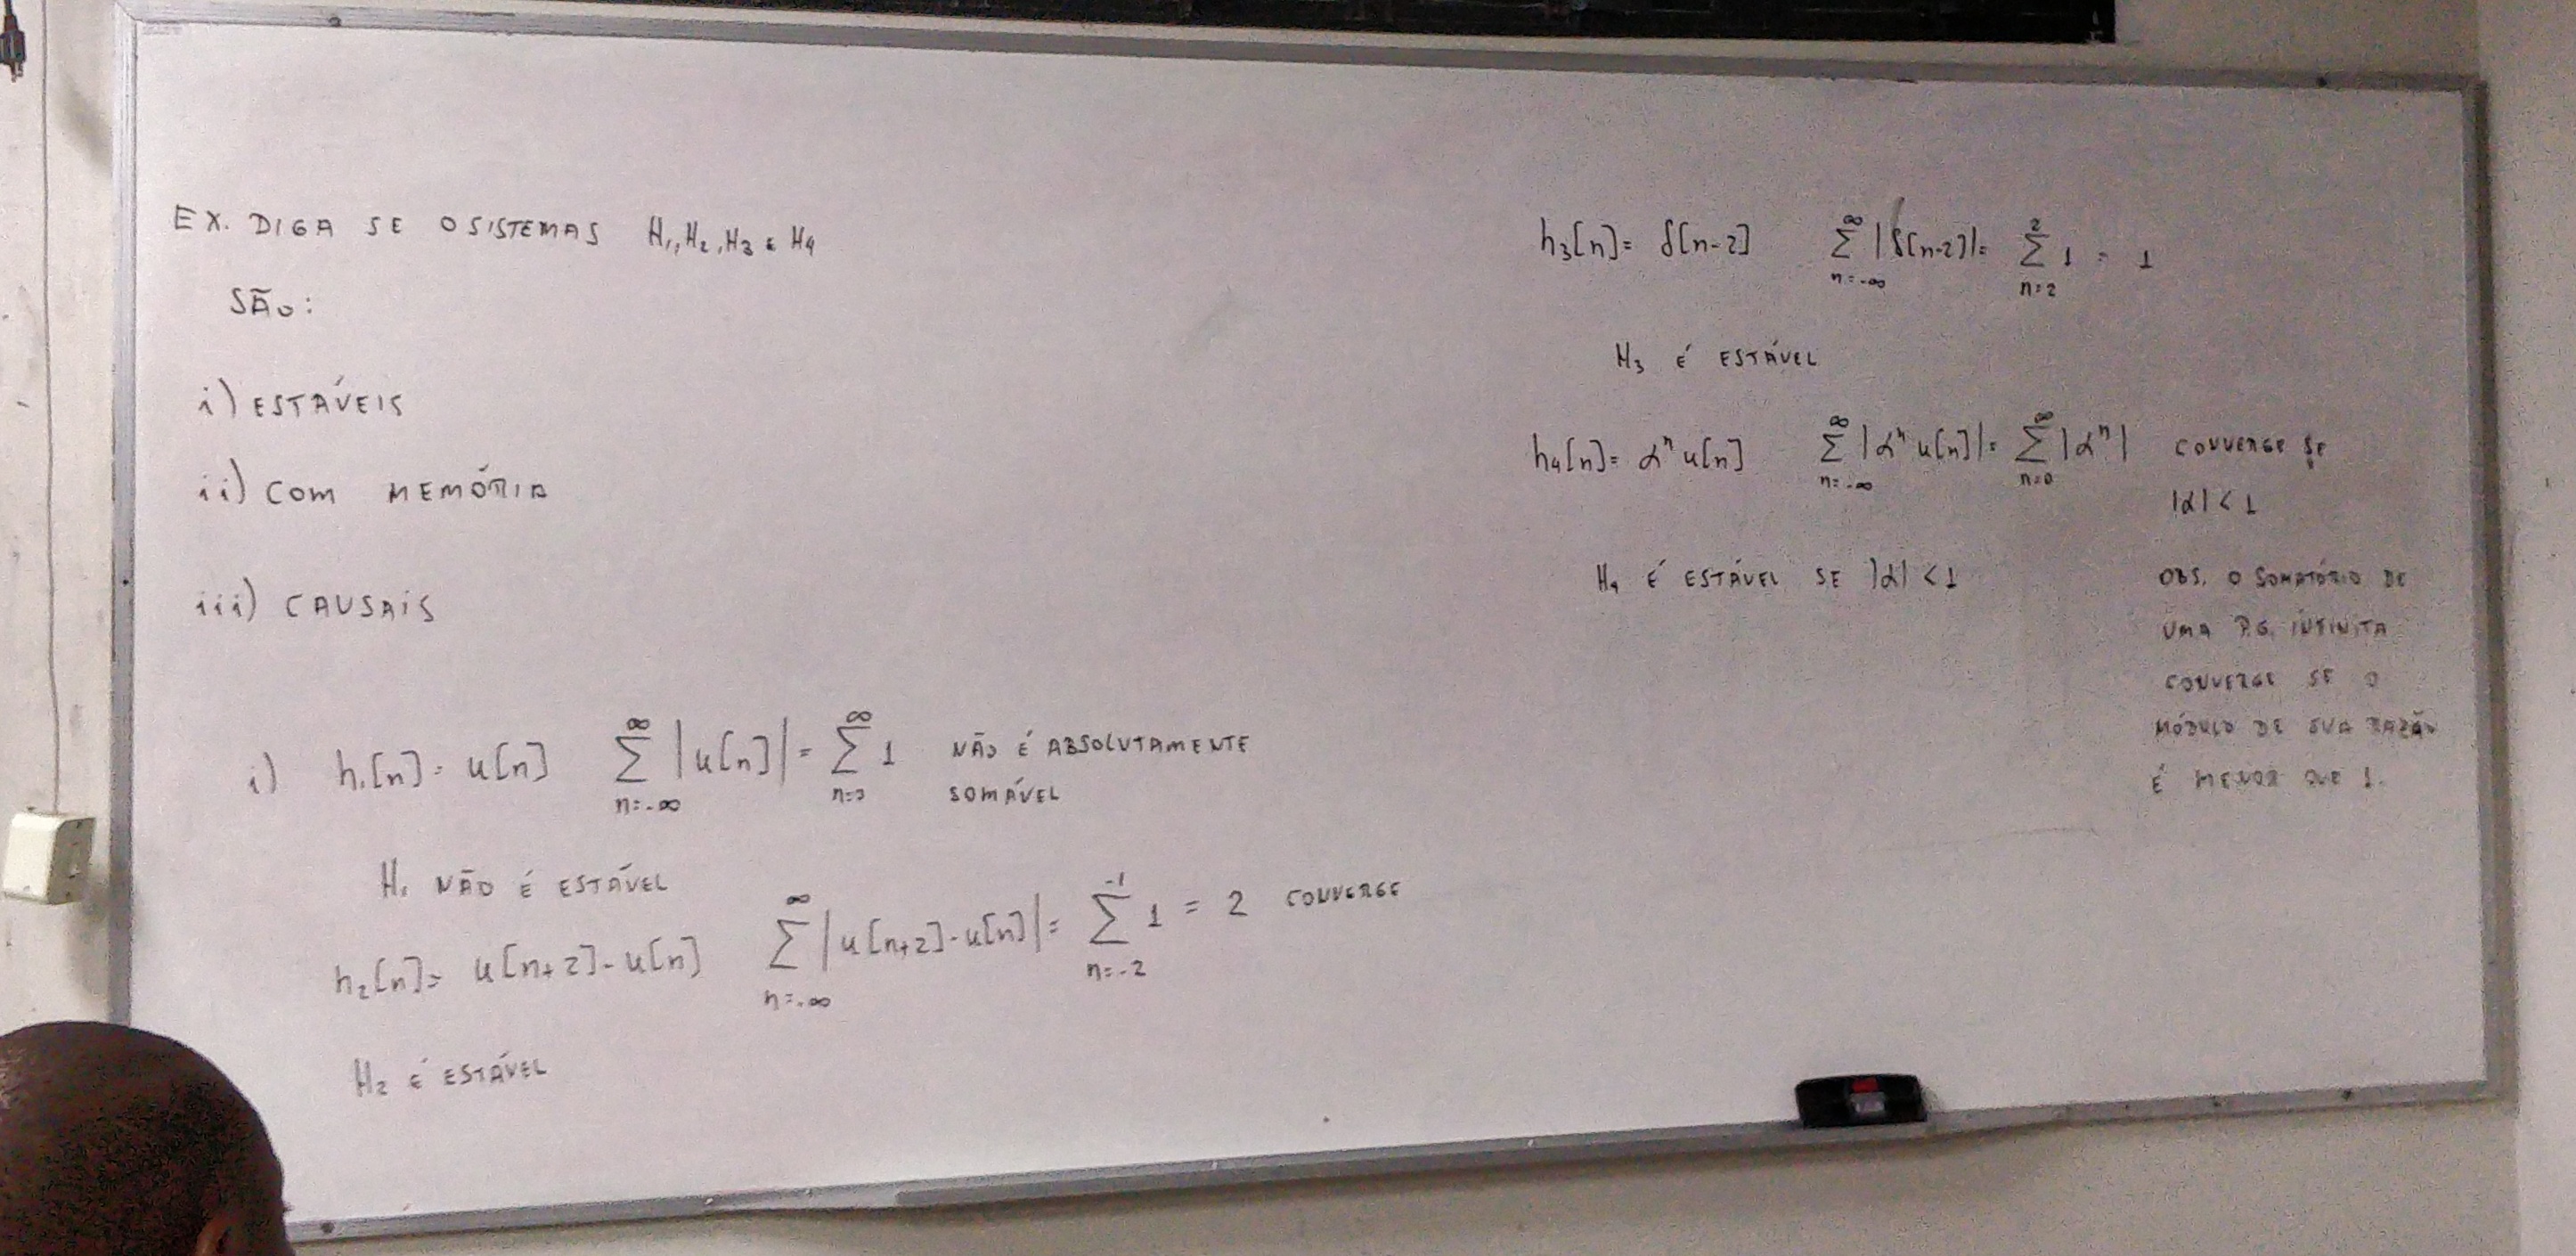 EX. DIGA SE O SISTEMAS H₁, H₂, H₃ E H₄
SÃO:
i) ESTÁVEIS
ii) COM MEMÓRIA
iii) CAUSAIS
i) h₁[n] = u[n] ∑_{n=-∞}^{∞} |u[n]| = ∑_{n=0}^{∞} 1 NÃO É ABSOLUTAMENTE
SOMÁVEL
H₁ NÃO É ESTÁVEL
h₂[n] = u[n+2] - u[n] ∑_{n=-∞}^{∞} |u[n+2] - u[n]| = ∑_{n=-2}^{-1} 1 = 2 CONVERGE
H₂ É ESTÁVEL
h₃[n] = δ[n-2] ∑_{n=-∞}^{∞} |δ[n-2]| = ∑_{n=2}^{2} 1 = 1
H₃ É ESTÁVEL
h₄[n] = αⁿ u[n] ∑_{n=-∞}^{∞} |αⁿ u[n]| = ∑_{n=0}^{∞} |αⁿ| CONVERGE SE
|α| < 1
H₄ É ESTÁVEL SE |α| < 1
OBS. O SOMATÓRIO DE
UMA P.G. INFINITA
CONVERGE SE O
MÓDULO DE SUA RAZÃO
É MENOR QUE 1.